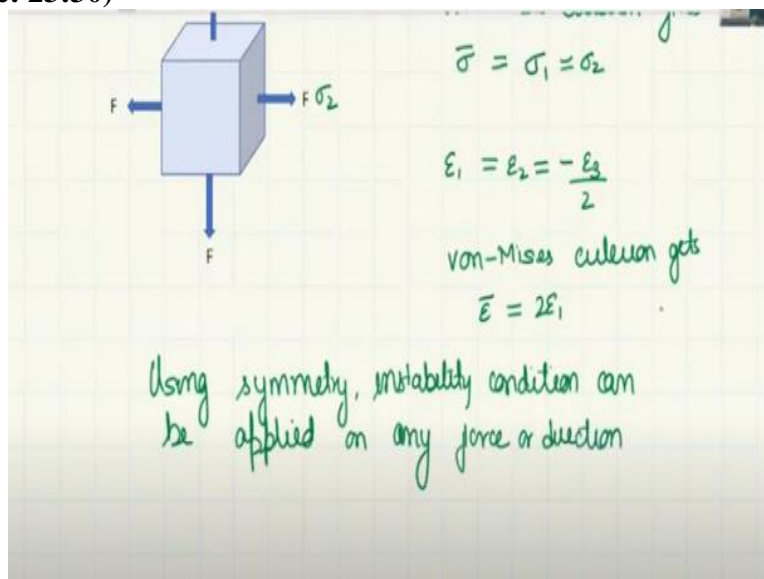 23:50)
F
F σ2
F
σ̄ = σ1 = σ2
ε1 = ε2 = -ε3/2
von-Mises criterion gets
ε̄ = 2ε1
Using symmetry, instability condition can
be applied on any force or direction